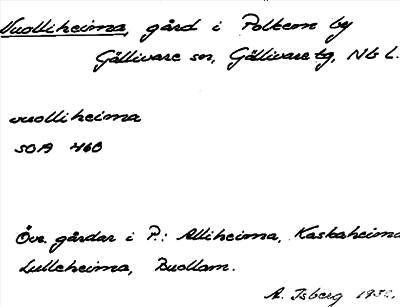 Vuolliheima, gård i Polkem by
Gällivare sn, Gällivare tg, Nb L.
vuolliheima
SOA 460
Övr. gårdar i P.: Alliheima, Kaskaheima
Lulleheima, Buollam.
A. Isberg